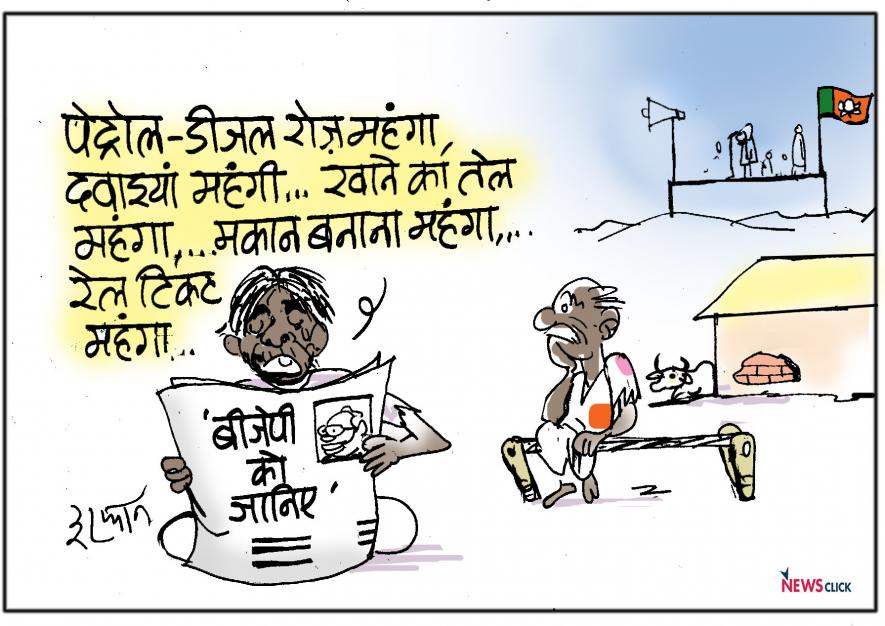 पेट्रोल-डीजल रोज़ महंगा,
दवाइयां महंगी... खाने का तेल
महंगा,...मकान बनाना महंगा,...
रेल टिकट
महंगा...
'बीजेपी
को
जानिए'
इरफान
NEWSCLICK